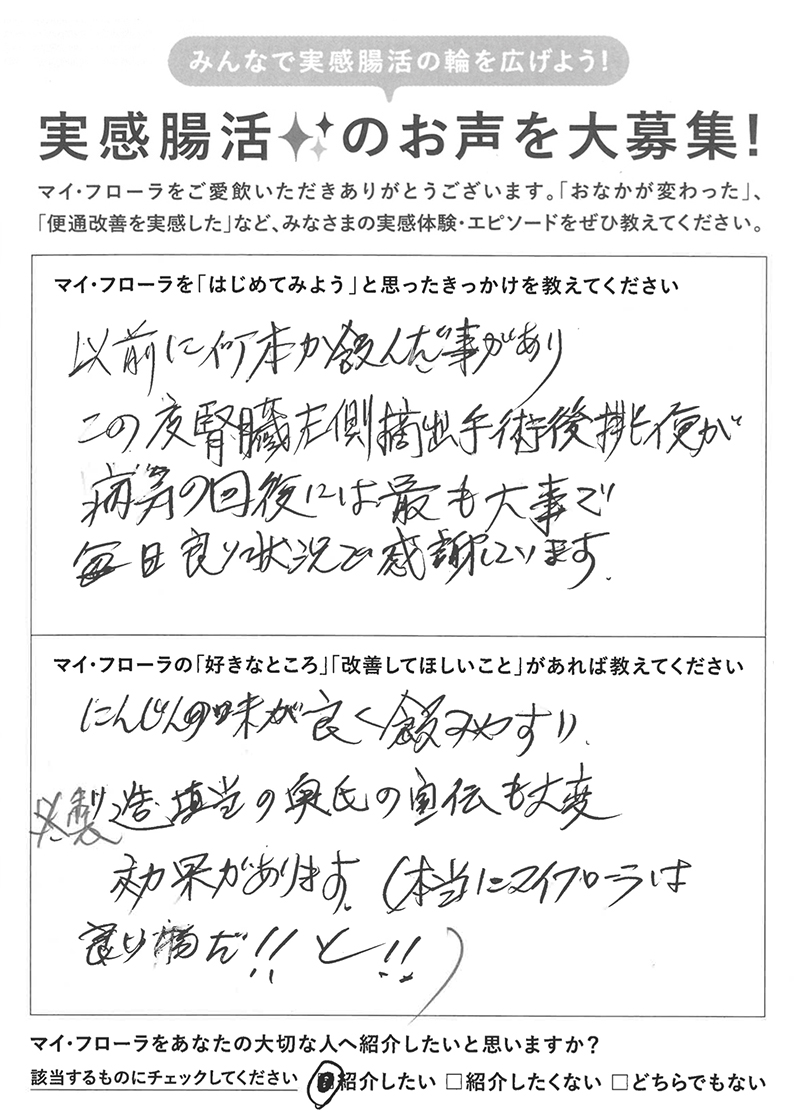 みんなで実感腸活の輪を広げよう!
実感腸活のお声を大募集!
マイ・フローラをご愛飲いただきありがとうございます。「おなかが変わった」、
「便通改善を実感した」など、みなさまの実感体験・エピソードをぜひ教えてください。
マイ・フローラを「はじめてみよう」と思ったきっかけを教えてください
以前に何本か飲んだ事があり
この度腎臓左側摘出手術後排便が
の回復には最も大事で
毎日良い状況で感謝しています。
マイ・フローラの「好きなところ」「改善してほしいこと」があれば教えてください
にんじんの味が良く飲みやすい。
製造担当の奥氏の宣伝も大変
効果があります。(本当にマイフローラは
良い物だ!!と!!)
マイ・フローラをあなたの大切な人へ紹介したいと思いますか?
該当するものにチェックしてください 紹介したい □紹介したくない □どちらでもない